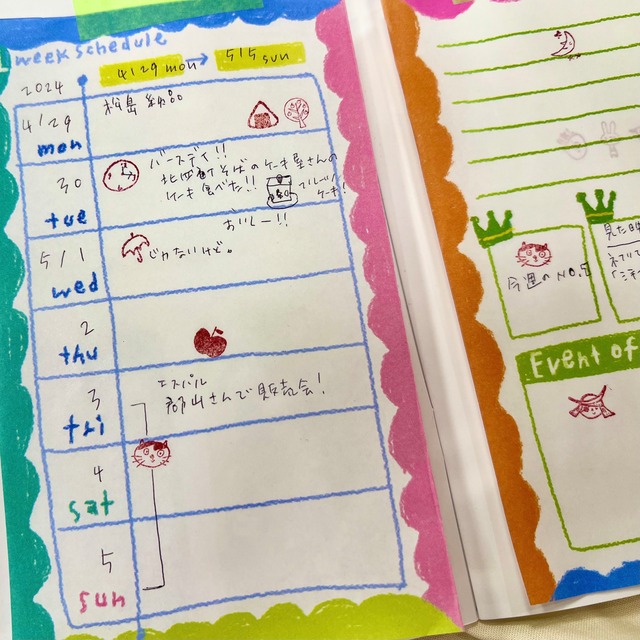 week schedule
2024
4/29 mon → 5/5 sun
4/29
mon
松島 納品
30
tue
バースデイ!!
北四番丁そばのケーキ屋さんの
ケーキ食べた!!
ケーキ!
おいしー!!
5/1
wed
じゃないけど。
2
thu
3
fri
エスパル
郡山さんで販売会!
4
sat
5
sun
今週のNO.1
Event of